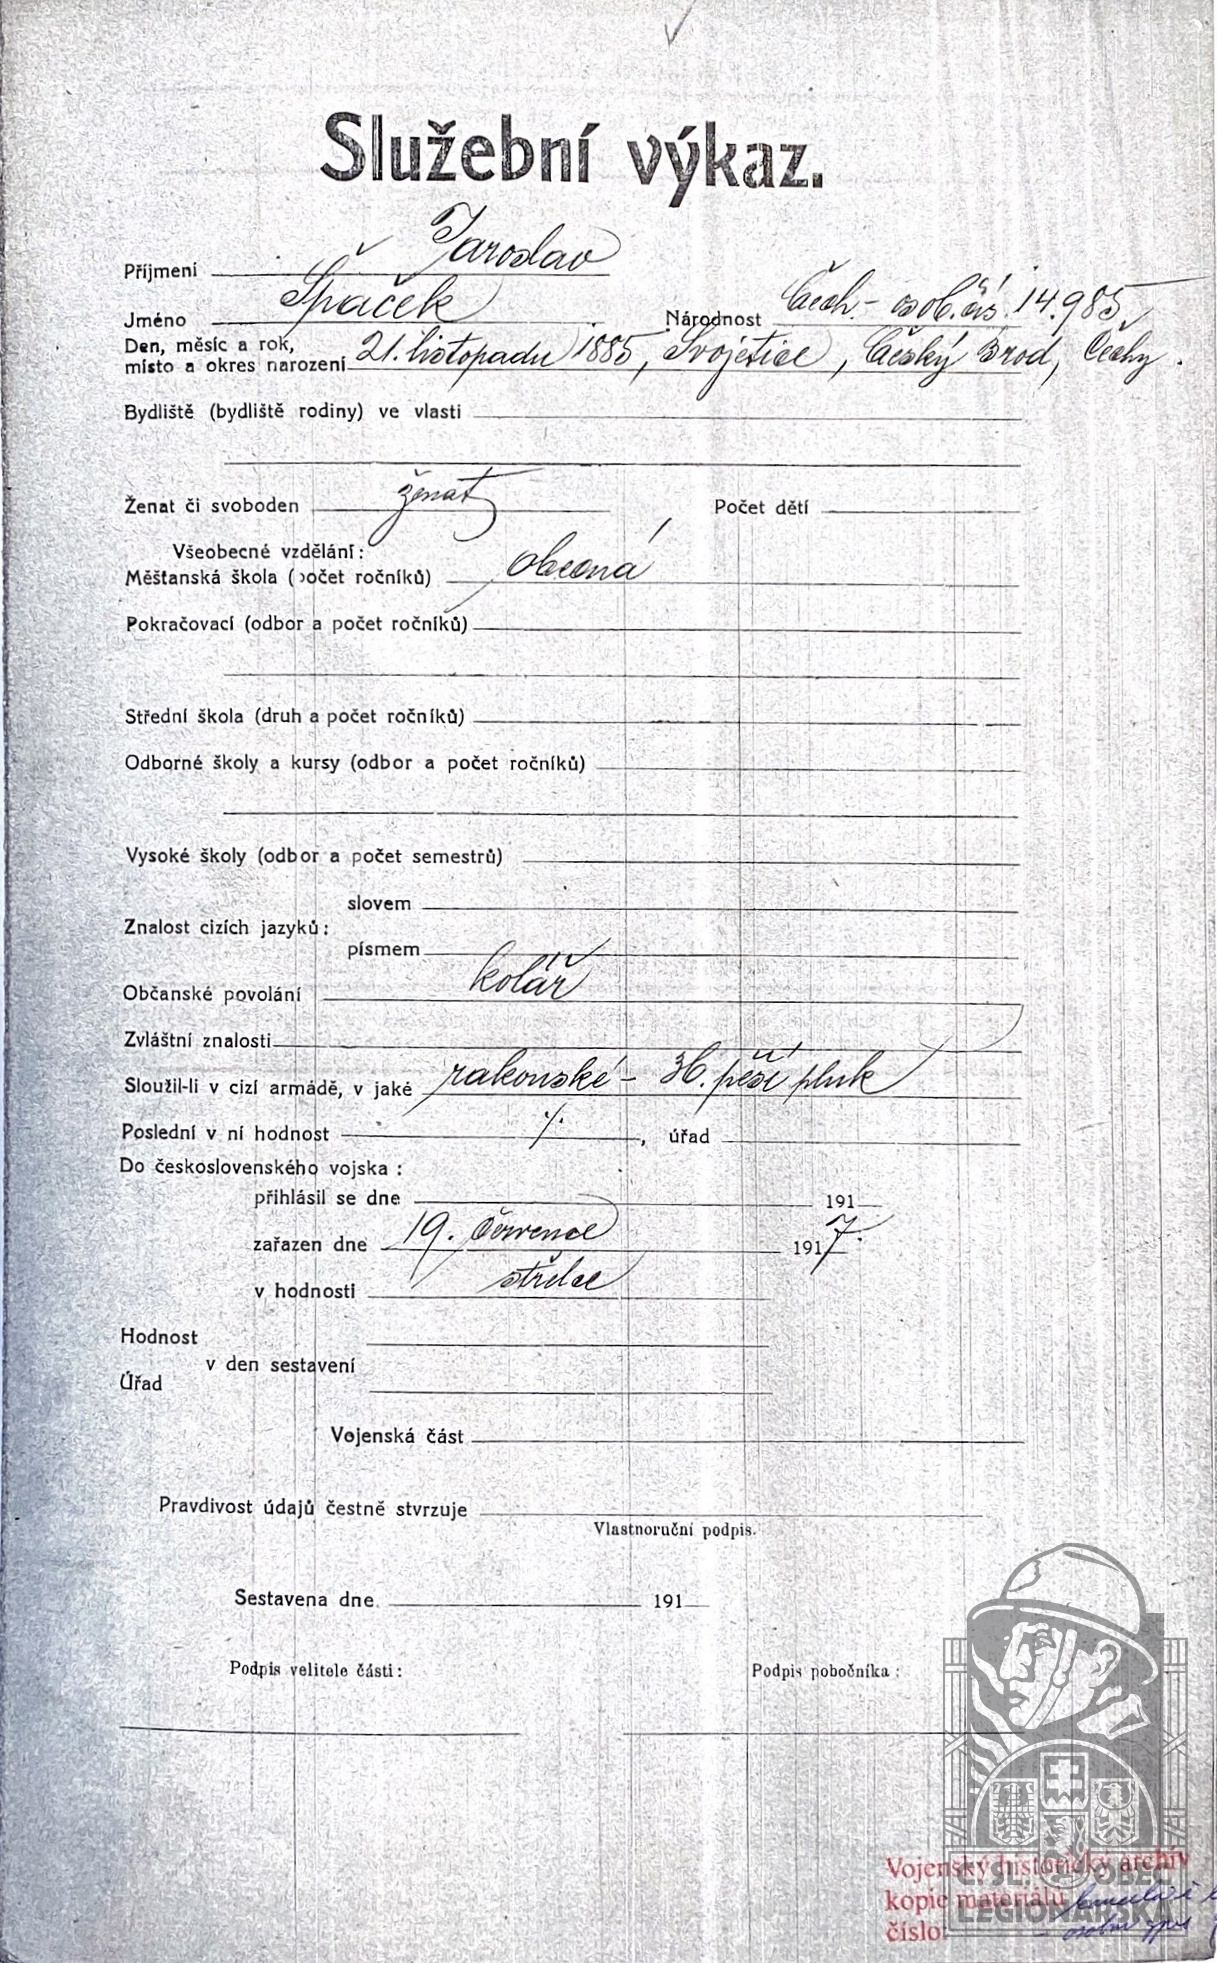 Služební výkaz.
Příjmení Jaroslav
Jméno Špaček Národnost Čech. - osob. čís. 14.985
Den, měsíc a rok,
místo a okres narození 21. listopadu 1885, Svojetice, Český Brod, Čechy.
Bydliště (bydliště rodiny) ve vlasti
Ženat či svoboden ženat Počet dětí
Všeobecné vzdělání:
Měšťanská škola (počet ročníků) obecná
Pokračovací (odbor a počet ročníků)
Střední škola (druh a počet ročníků)
Odborné školy a kursy (odbor a počet ročníků)
Vysoké školy (odbor a počet semestrů)
slovem
Znalost cizích jazyků:
písmem
Občanské povolání kolář
Zvláštní znalosti
Sloužil-li v cizí armádě, v jaké rakouské - 36. pěší pluk
Poslední v ní hodnost /. , úřad
Do československého vojska :
přihlásil se dne 191
zařazen dne 19. července 1917.
v hodnosti střelec
Hodnost
v den sestavení
Úřad
Vojenská část
Pravdivost údajů čestně stvrzuje
Vlastnoruční podpis.
Sestavena dne 191
Podpis velitele části: Podpis pobočníka :
Vojenský historický archiv
kopie materiálu
číslo:
Č. SL. OBEC
LEGIONÁŘSKÁ